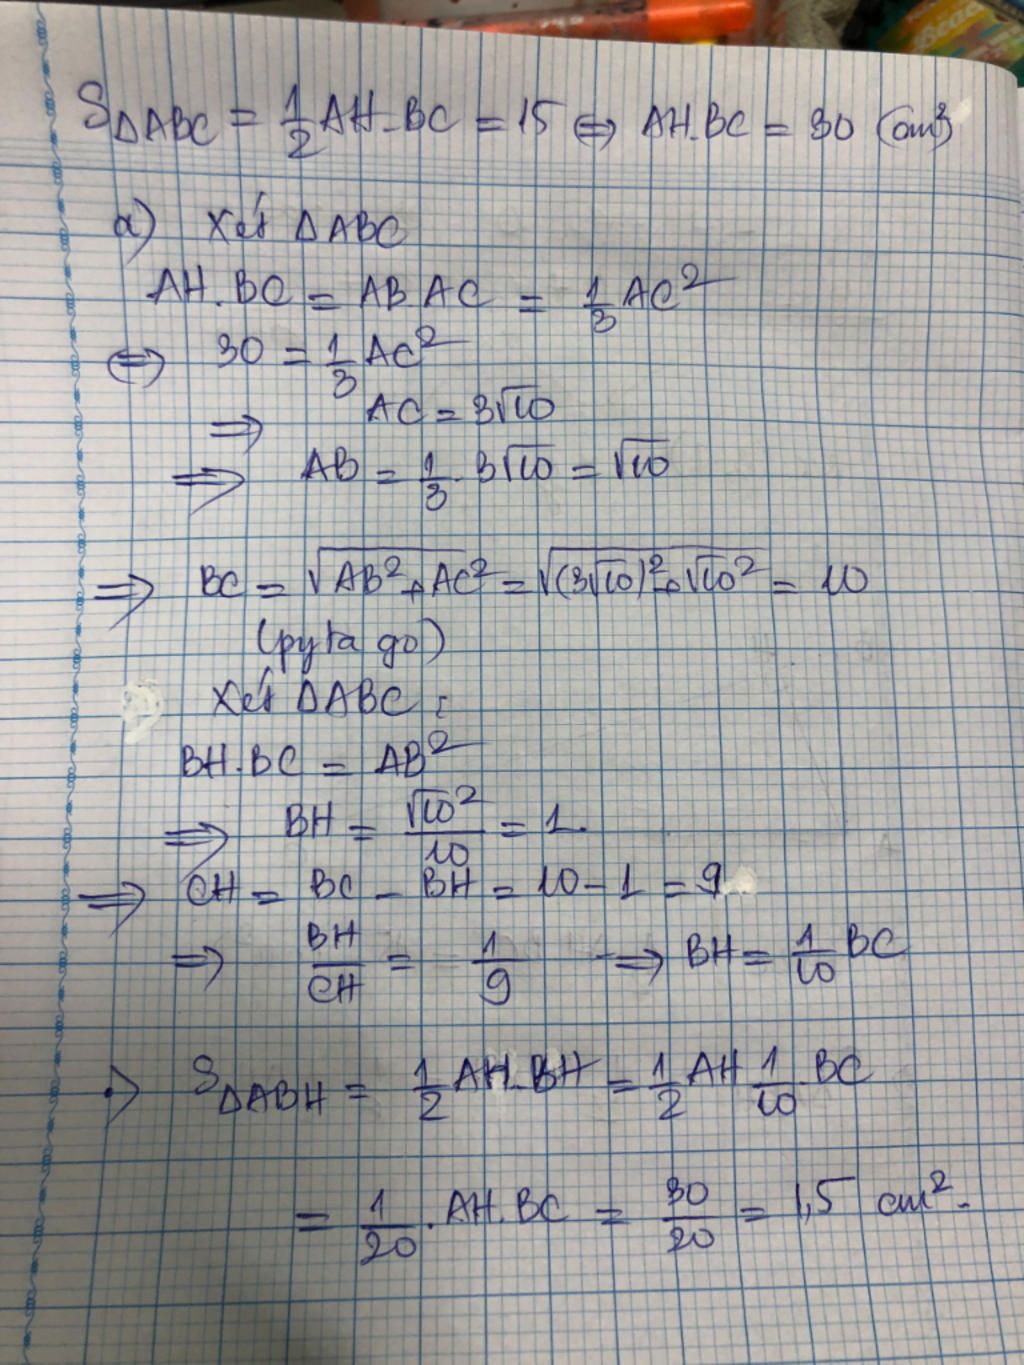 S△ABC = 1/2 AH.BC = 15 ⇔ AH.BC = 30 (cm²)
a) Xét △ABC
AH.BC = AB AC = 1/3 AC²
⇔ 30 = 1/3 AC²
⇒ AC = 3√10
⇒ AB = 1/3 . 3√10 = √10
⇒ BC = √(AB² + AC²) = √((3√10)² + √10²) = 10
(pytago)
Xét △ABC :
BH.BC = AB²
⇒ BH = √10²/10 = 1.
⇒ CH = BC - BH = 10 - 1 = 9
⇒ BH/CH = 1/9 ⇒ BH = 1/10 BC
⇒ S△ABH = 1/2 AH.BH = 1/2 AH 1/10 . BC
= 1/20 . AH.BC = 30/20 = 1,5 cm².